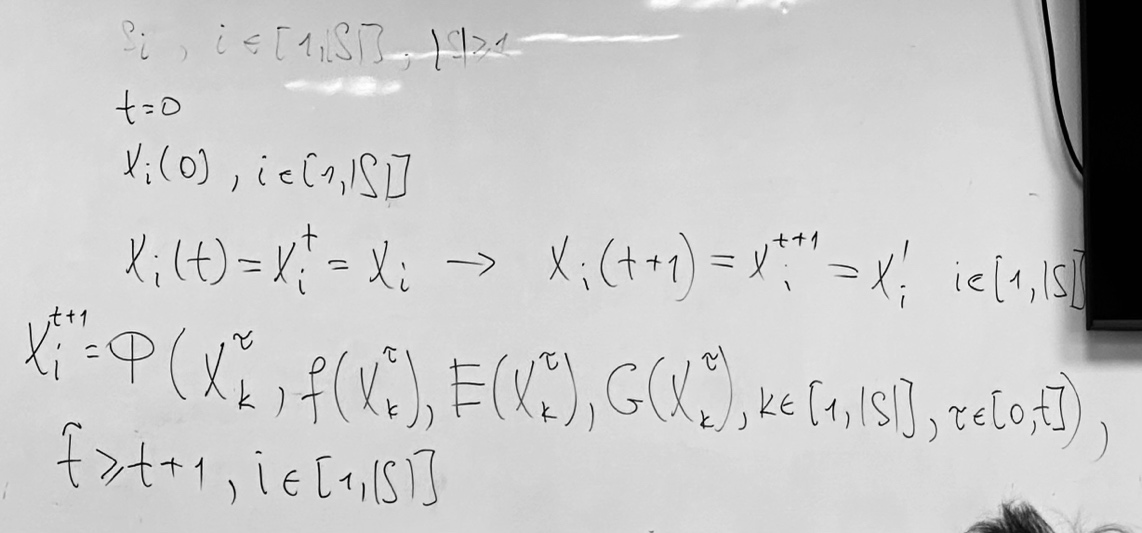 Si , i ∈ [1,|S|] , |S|≥1
t=0
Xi(0) , i ∈ [1,|S|]
Xi(t) = Xi^t = Xi → Xi(t+1) = Xi^t+1 = Xi' i∈[1,|S|]
Xi^t+1 = Φ(Xk^τ, f(Xk^τ), E(Xk^τ), G(Xk^τ), k∈[1,|S|], τ∈[0,t]),
t̂ ⩾ t+1, i ∈ [1,|S|]